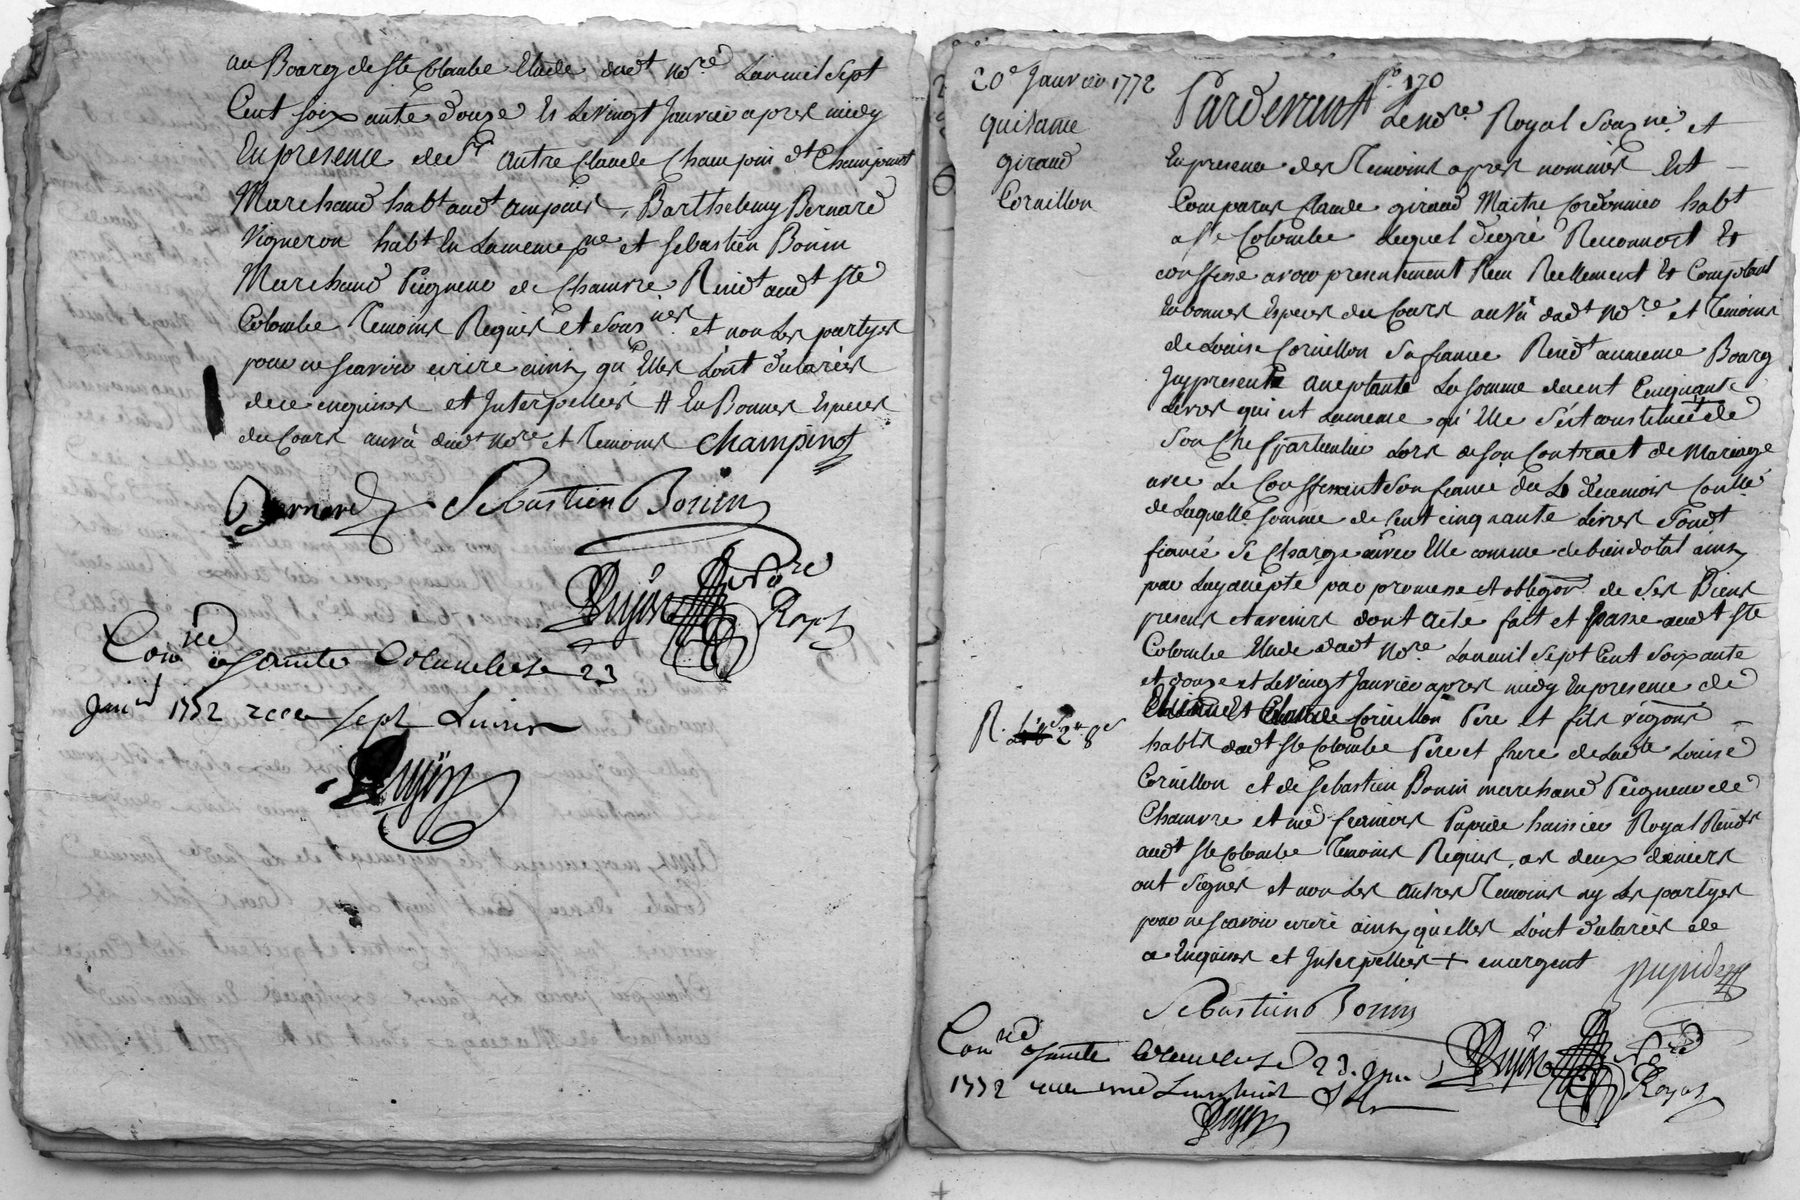 au Bourg de Ste Colombe Etude dud.t No.re L'an mil sept
Cent soixante douze Et Le vingt Janvier apres midy
En presence de autre Claude Champoin dt Champinot
Marchand hab.t aud.t ampuis, Barthelemy Bernard
Vigneron hab.t En La meme et Sebastien Bonin
Marchand Peigneur de Chanvre Resid.t aud.t Ste
Colombe Temoins Requis et sous.nés et non Les partyes
pour ne scavoir ecrire ainsy qu'Elles L'ont declarées
de ce enquises et Interpellées # En Bonnes Especes
du Cours au vû dud.t No.re et Temoins Champinot
Bernard Sebastien Bonin
Guyot No.re
Royal
Con.lé a Sainte Colombe Le 23
Janv 1772 recu sept Livres
Guyot
20e Janvier 1772
quitance
giraud
Cornillon
f° 170
Pardevant Le No.re Royal Sous.né et
En presence des Temoins apres nommés Est
Comparus Claude giraud Maitre Cordonnier hab.t
a Ste Colombe Lequel de gré Reconnoit Et
confesse avoir presentement Reçu Reellement Et Comptant
En bonnes Especes du Cours au vû dud.t No.re et Temoins
de Louise Cornillon Sa fiancée Resid.t au meme Bourg
Jcy presente acceptante La somme de cent Cinquante
Livres qui est La meme qu'Elle s'est constituée de
Son Chef particulier Lors de son Contract de Mariage
avec Le Confessant Son fiancé du Conllé
de Laquelle somme de Cent cinquante Livres Led.t
fiancé Se Charge Envers Elle comme de bien dotal ainsy
par Luy accepté par promesse et obligon. de Ses Biens
presents et avenirs dont Acte fait et Passé aud.t Ste
Colombe Etude dud.t No.re L'an mil Sept Cent Soixante
et douze et Le vingt Janvier apres midy En presence de
Et Claude Cornillon Pere et fils vigons
R. 2# 8s
habts dud.t Ste Colombe Pere et frere de Lad.te Louise
Cornillon et de Sebastien Bonin marchand Peigneur de
Chanvre et me francois Pupide huissier Royal Residts
aud.t Ste Colombe Temoins Requis, ces deux derniers
ont Signés et non Les Autres Temoins ny Les partyes
pour ne scavoir ecrire ainsy qu'elles L'ont declarées de
ce Enquises et Interpellées + en argent
Pupide
Sebastien Bonin
Con.lé a Sainte Colombe Le 23. Janv
Guyot No.re
Royal
1772 recu une Livre huit Sols
Guyot